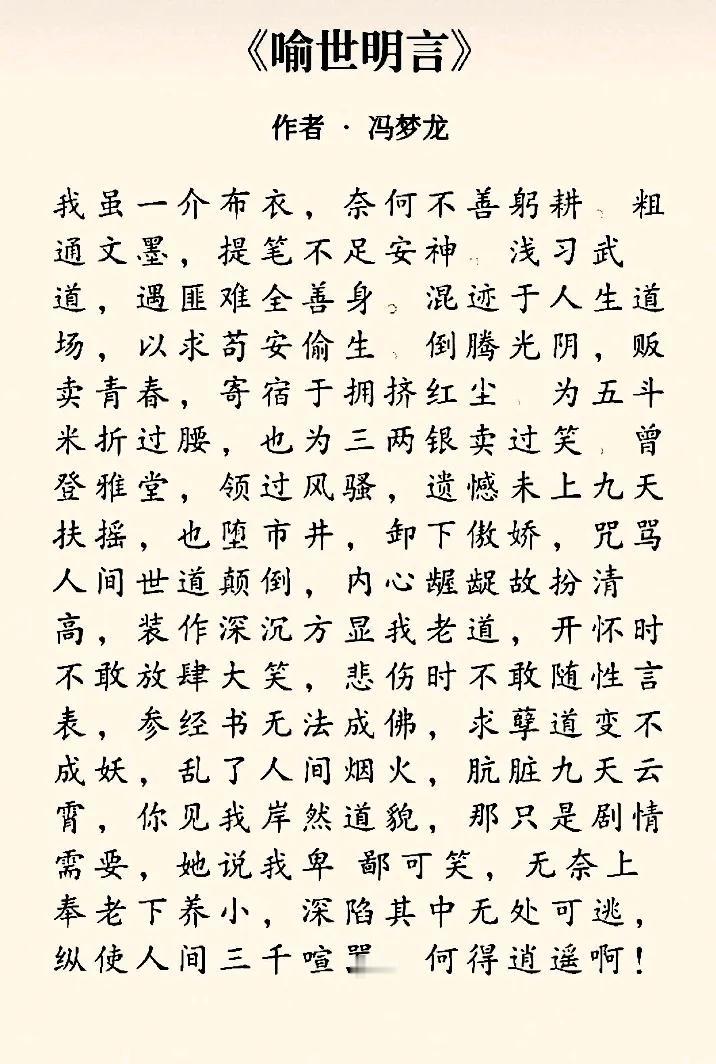 《喻世明言》
作者 · 冯梦龙
我虽一介布衣，奈何不善躬耕。粗
通文墨，提笔不足安神。浅习武
道，遇匪难全善身。混迹于人生道
场，以求苟安偷生、倒腾光阴，贩
卖青春，寄宿于拥挤红尘 为五斗
米折过腰，也为三两银卖过笑、曾
登雅堂，领过风骚，遗憾未上九天
扶摇，也堕市井，卸下傲娇，咒骂
人间世道颠倒，内心龌龊故扮清
高，装作深沉方显我老道，开怀时
不敢放肆大笑，悲伤时不敢随性言
表，参经书无法成佛，求孽道变不
成妖，乱了人间烟火，肮脏九天云
霄，你见我岸然道貌，那只是剧情
需要，她说我卑 鄙可笑，无奈上
奉老下养小，深陷其中无处可逃，
纵使人间三千喧 何得逍遥啊！